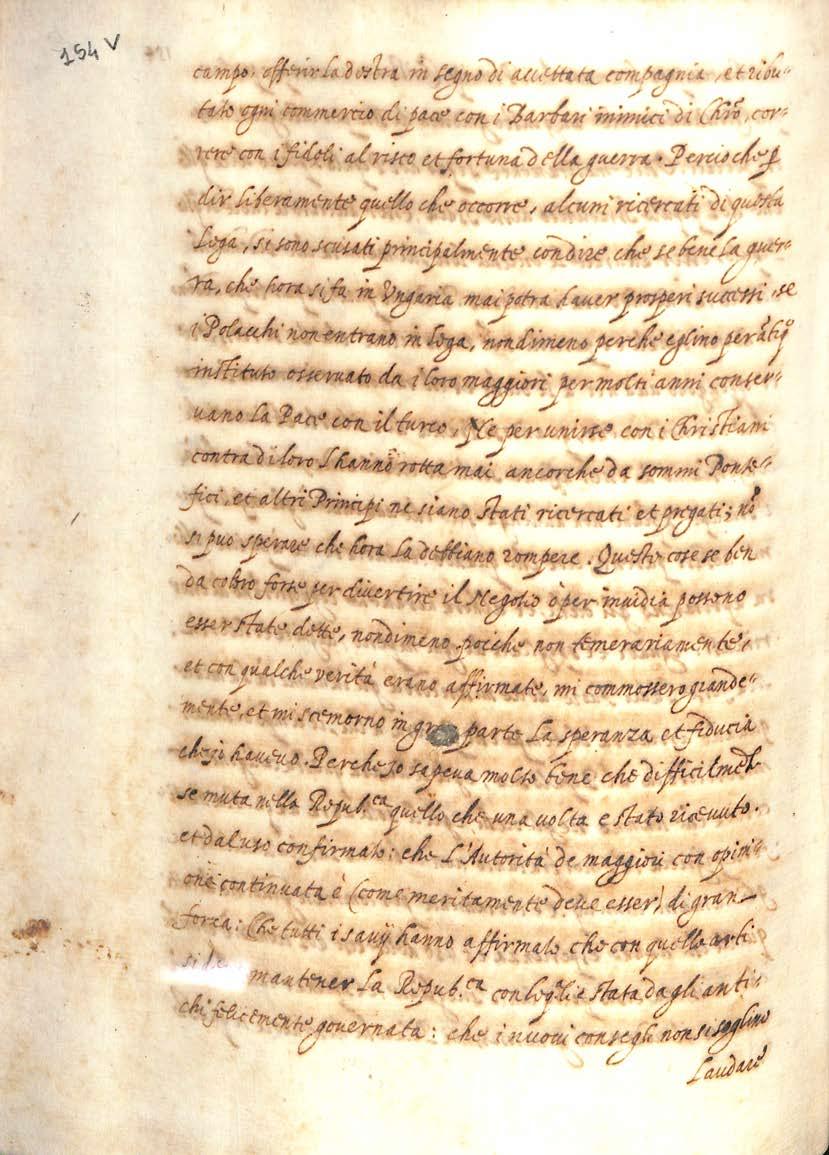 154 V
campo, offerir la destra in segno di accettata compagnia, et ribu-
tato ogni commercio di pace con i Barbari inimici di Chro, cor-
rere con i fideli al risco et fortuna della guerra. Percioche p
dir liberamente quello che occorre, alcuni ricercati di questa
Lega, si sono scusati principalmente con dire che se bene la guer-
ra, che hora si fa in Vngaria mai potra haver prosperi successi, se
i Polacchi non entrano in lega, nondimeno perche eglino per
instituto osservato da i loro maggiori per molti anni conser-
vano la Pace con il turco, Ne per unirse con i Christiani
contra di loro l'hanno rotta mai ancorche da sommi Ponte-
fici, et altri Principi ne siano stati ricercati et pregati; no
si puo sperare che hora la debbiano rompere. Queste cose se ben
da coloro forse per divertire il Negotio ò per invidia possono
esser state dette, nondimeno poiche non temerariamente,
et con qualche verità erano affirmate, mi commossero grande-
mente, et mi scemorno in gran parte la speranza et fiducia
che jo havevo. Perche jo sapeva molto bene che difficilmte
se muta nella Repub.ca quello che una volta e stato ricevuto.
et dal uso confirmato: che L'Autorità de maggiori con opini-
one continuata è (come meritamente deve esser) di gran
forza: Che tutti i savij hanno affirmato che con quelle arti
si de mantener la Repub.ca con le qli e stata dagli anti-
chi felicemente governata: che i nuovi consegli non si soglino
Laudare